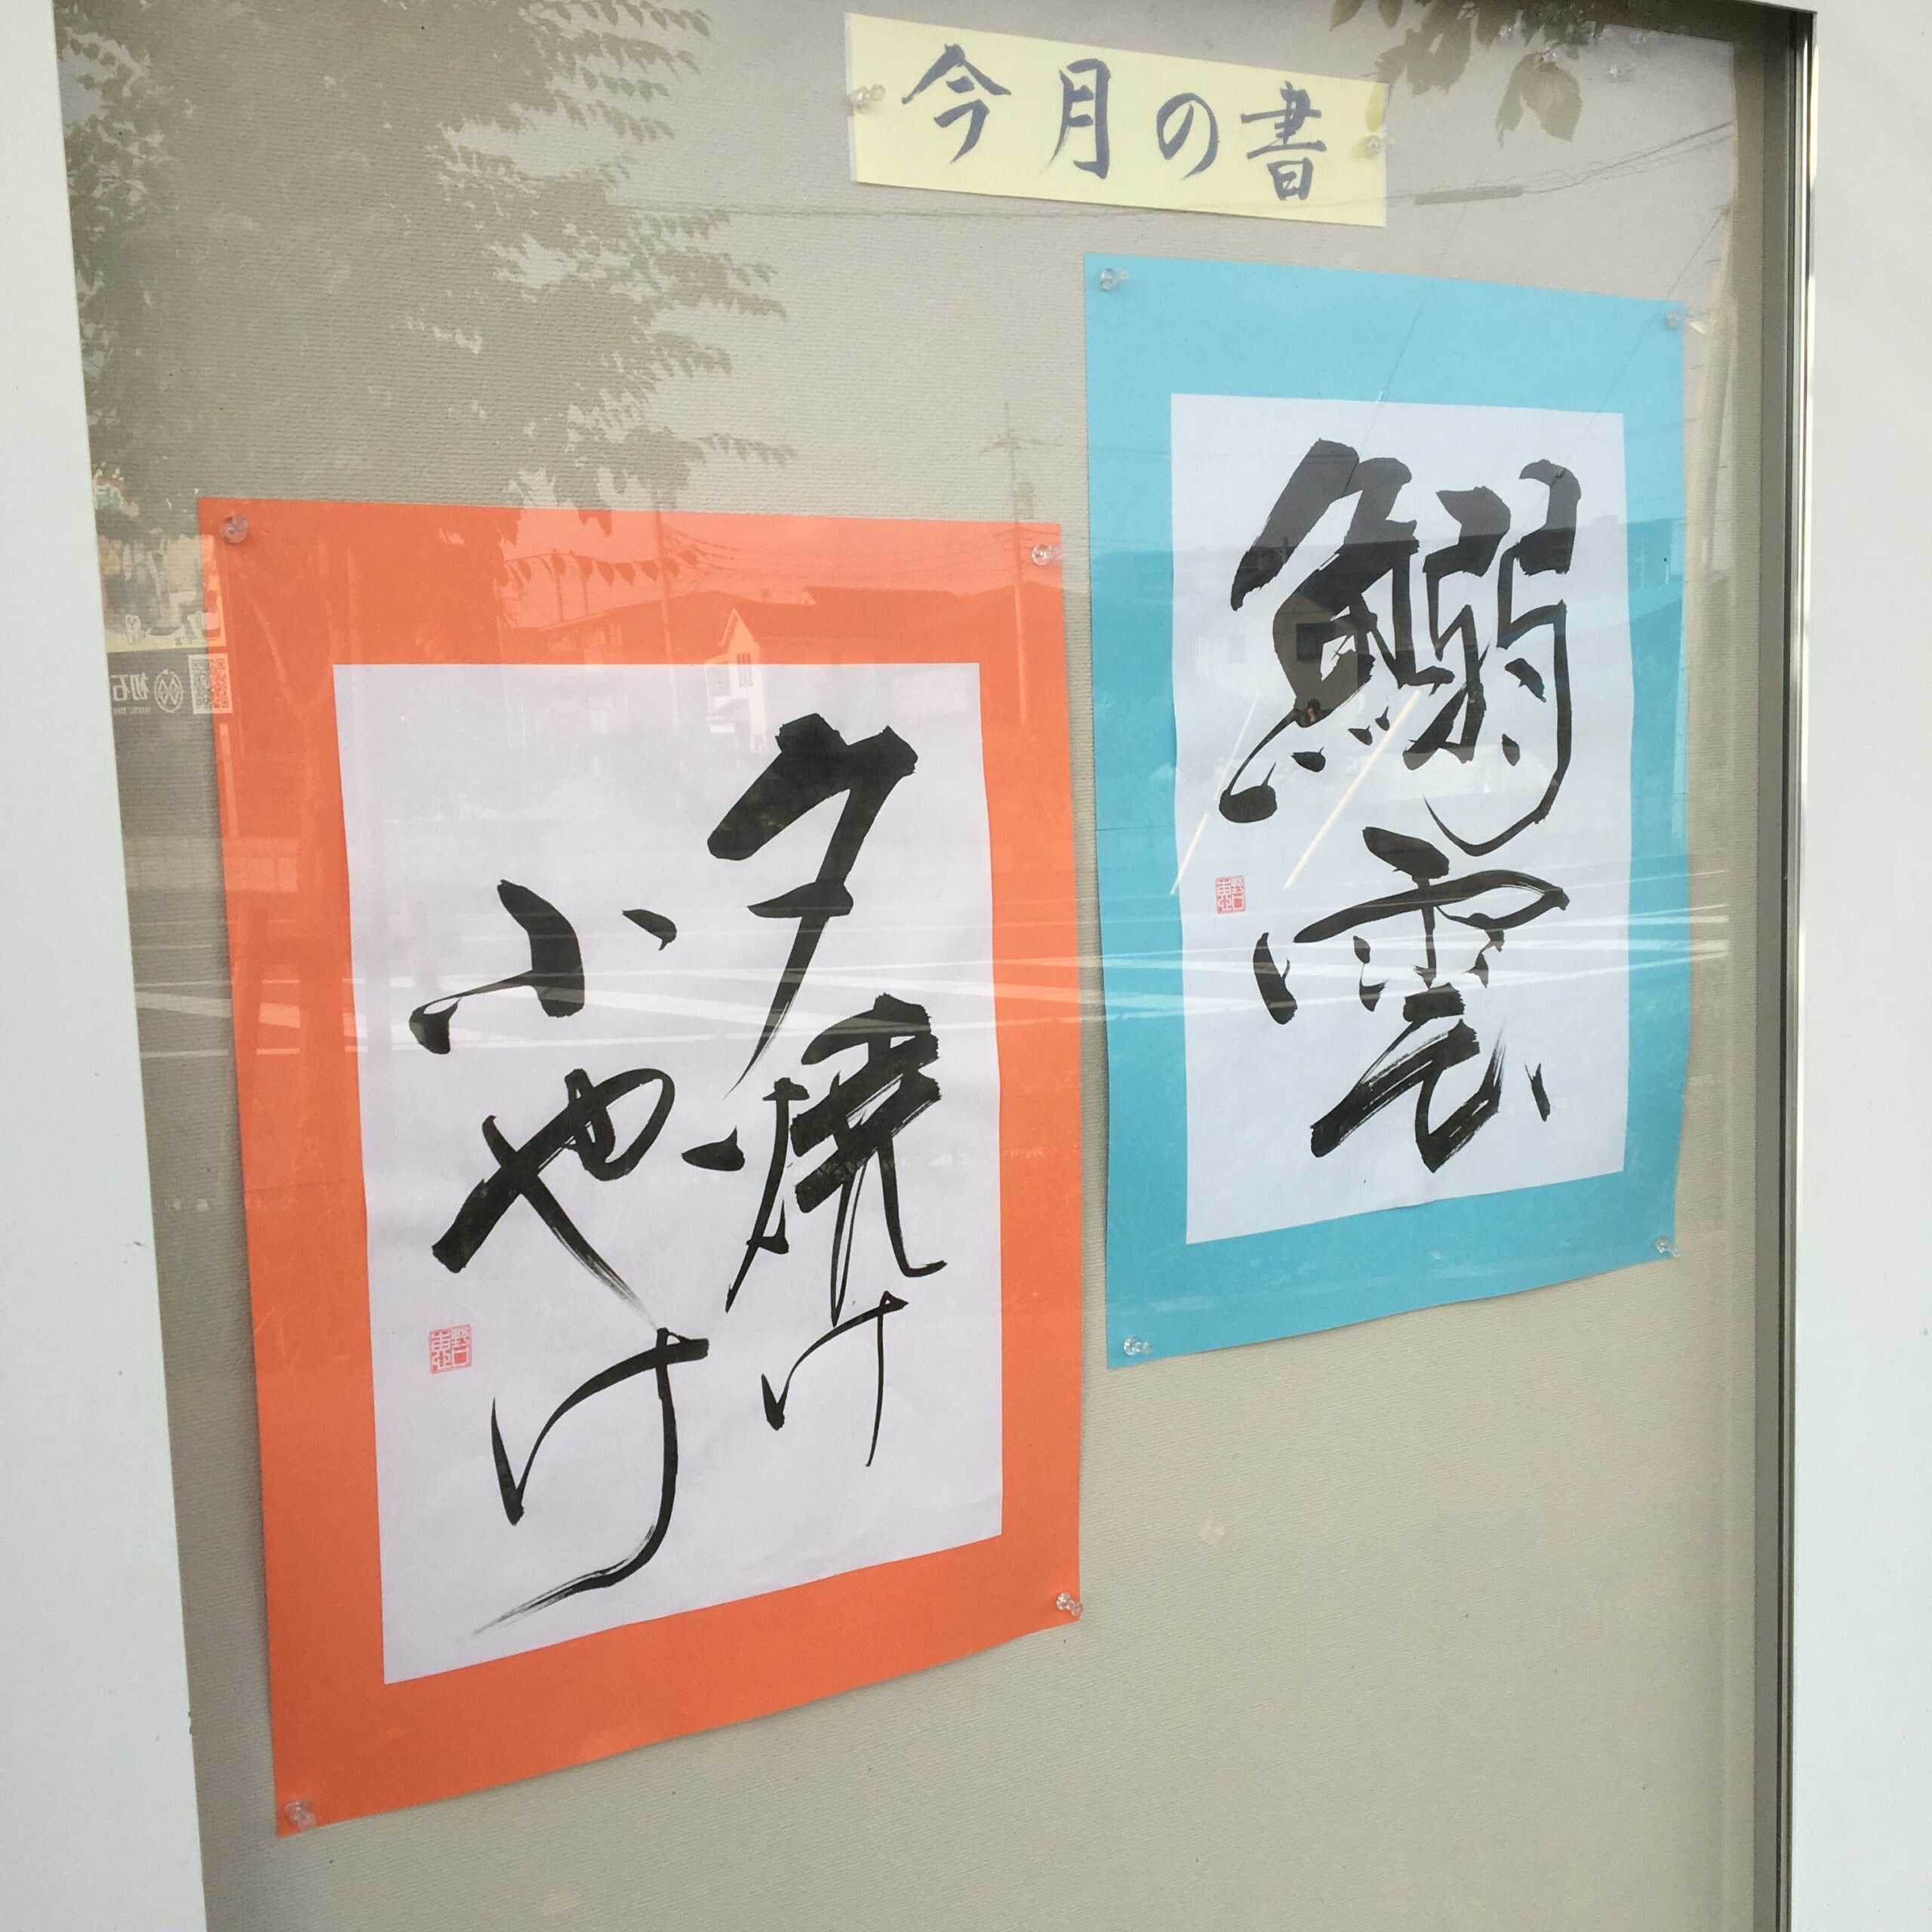 今月の書
鰯雲
夕焼け
小やけ